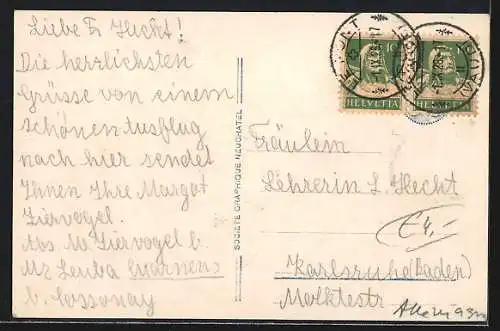 Liebe Fr Hecht!
Die herzlichsten
Grüsse von einem
schönen Ausflug
nach hier sendet
Ihnen Ihre Margot
Ziervogel.
Abs. M. Ziervogel b.
Mr Leuba Warnens
b. Cossonay
SOCIÉTÉ GRAPHIQUE NEUCHATEL
10
HELVETIA
HELVETIA
Fräulein
Lehrerin L. Hecht
Karlsruhe (Baden)
Moltkestr